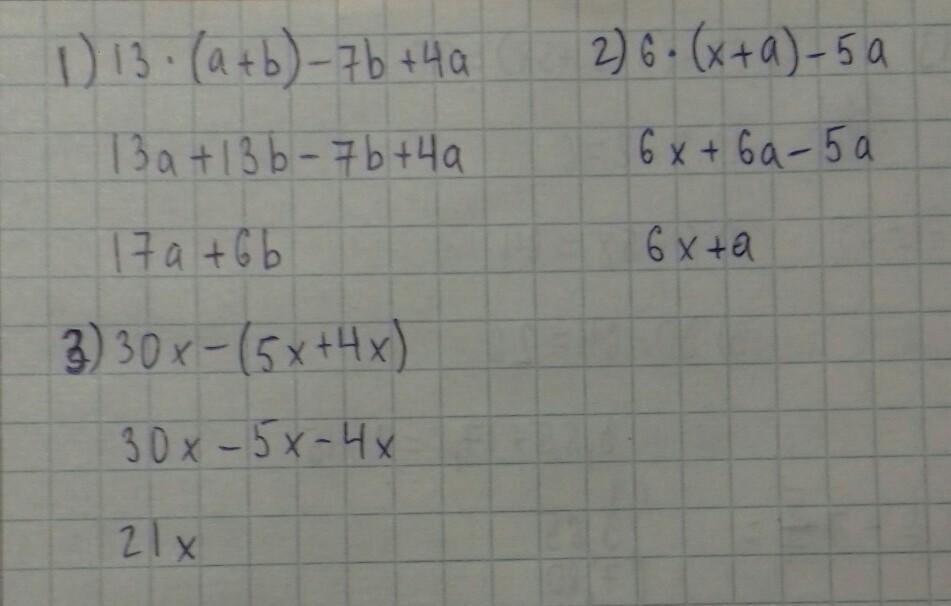 1) 13 · (a+b) – 7b + 4a
13a + 13b – 7b + 4a
17a + 6b
2) 6 · (x+a) – 5a
6x + 6a – 5a
6x + a
3) 30x – (5x + 4x)
30x – 5x – 4x
21x